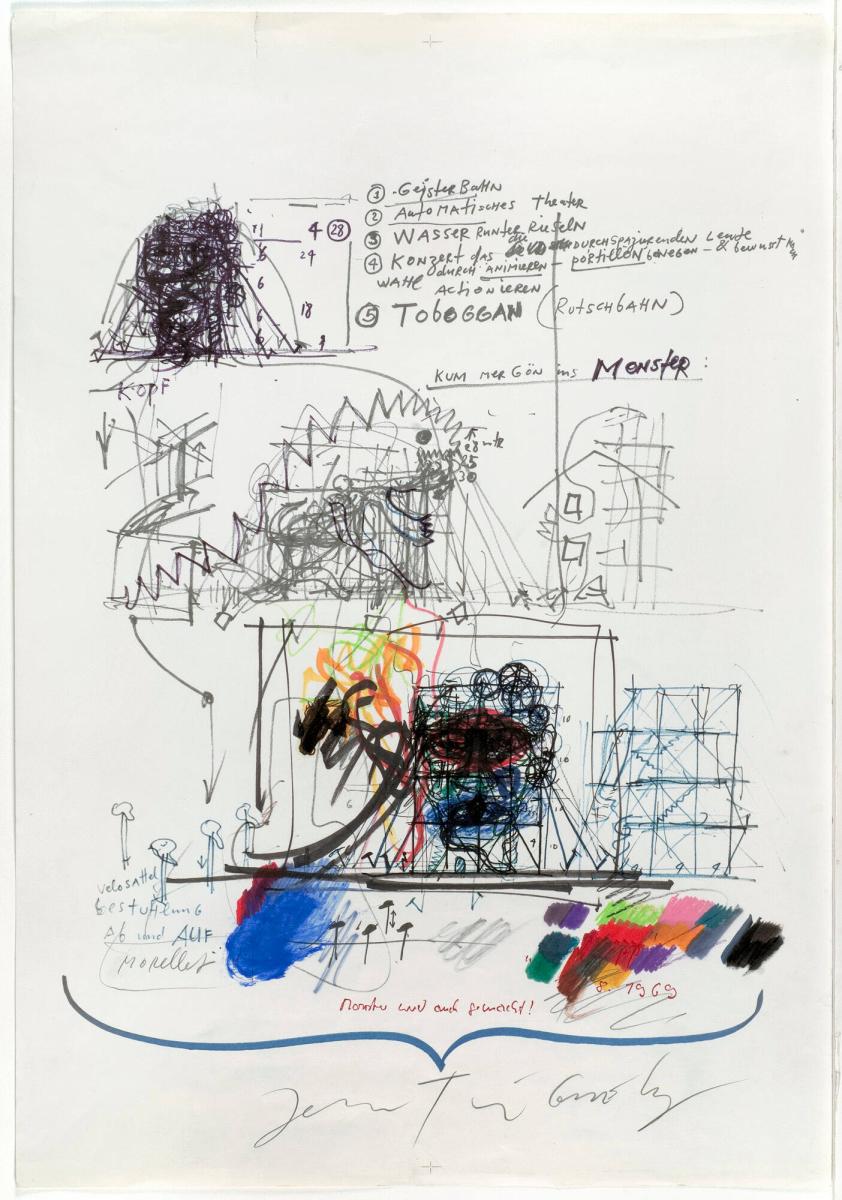 ① GeisterBahn
② AutoMATisches Theater
③ WASSER runter Rieseln
④ Konzert das die DURCHSPAZIERENDEN Leute
WAHL durch ANIMIEREN - PORTILLON bewegen - & bewusst
ActionIEREN
⑤ TobOGGAN (RUtSCHbAHN)
4 ㉘
24
6
6
18
6
6
KOPF
KUM MER GÖN ins MONSteR:
28 mtr
25
30
10
10
10
6
9
9
Velosattel
bestuhlung
Ab und AUF
Morellet
8. 1969
Monster wird auch gemacht!
Jean Tinguely